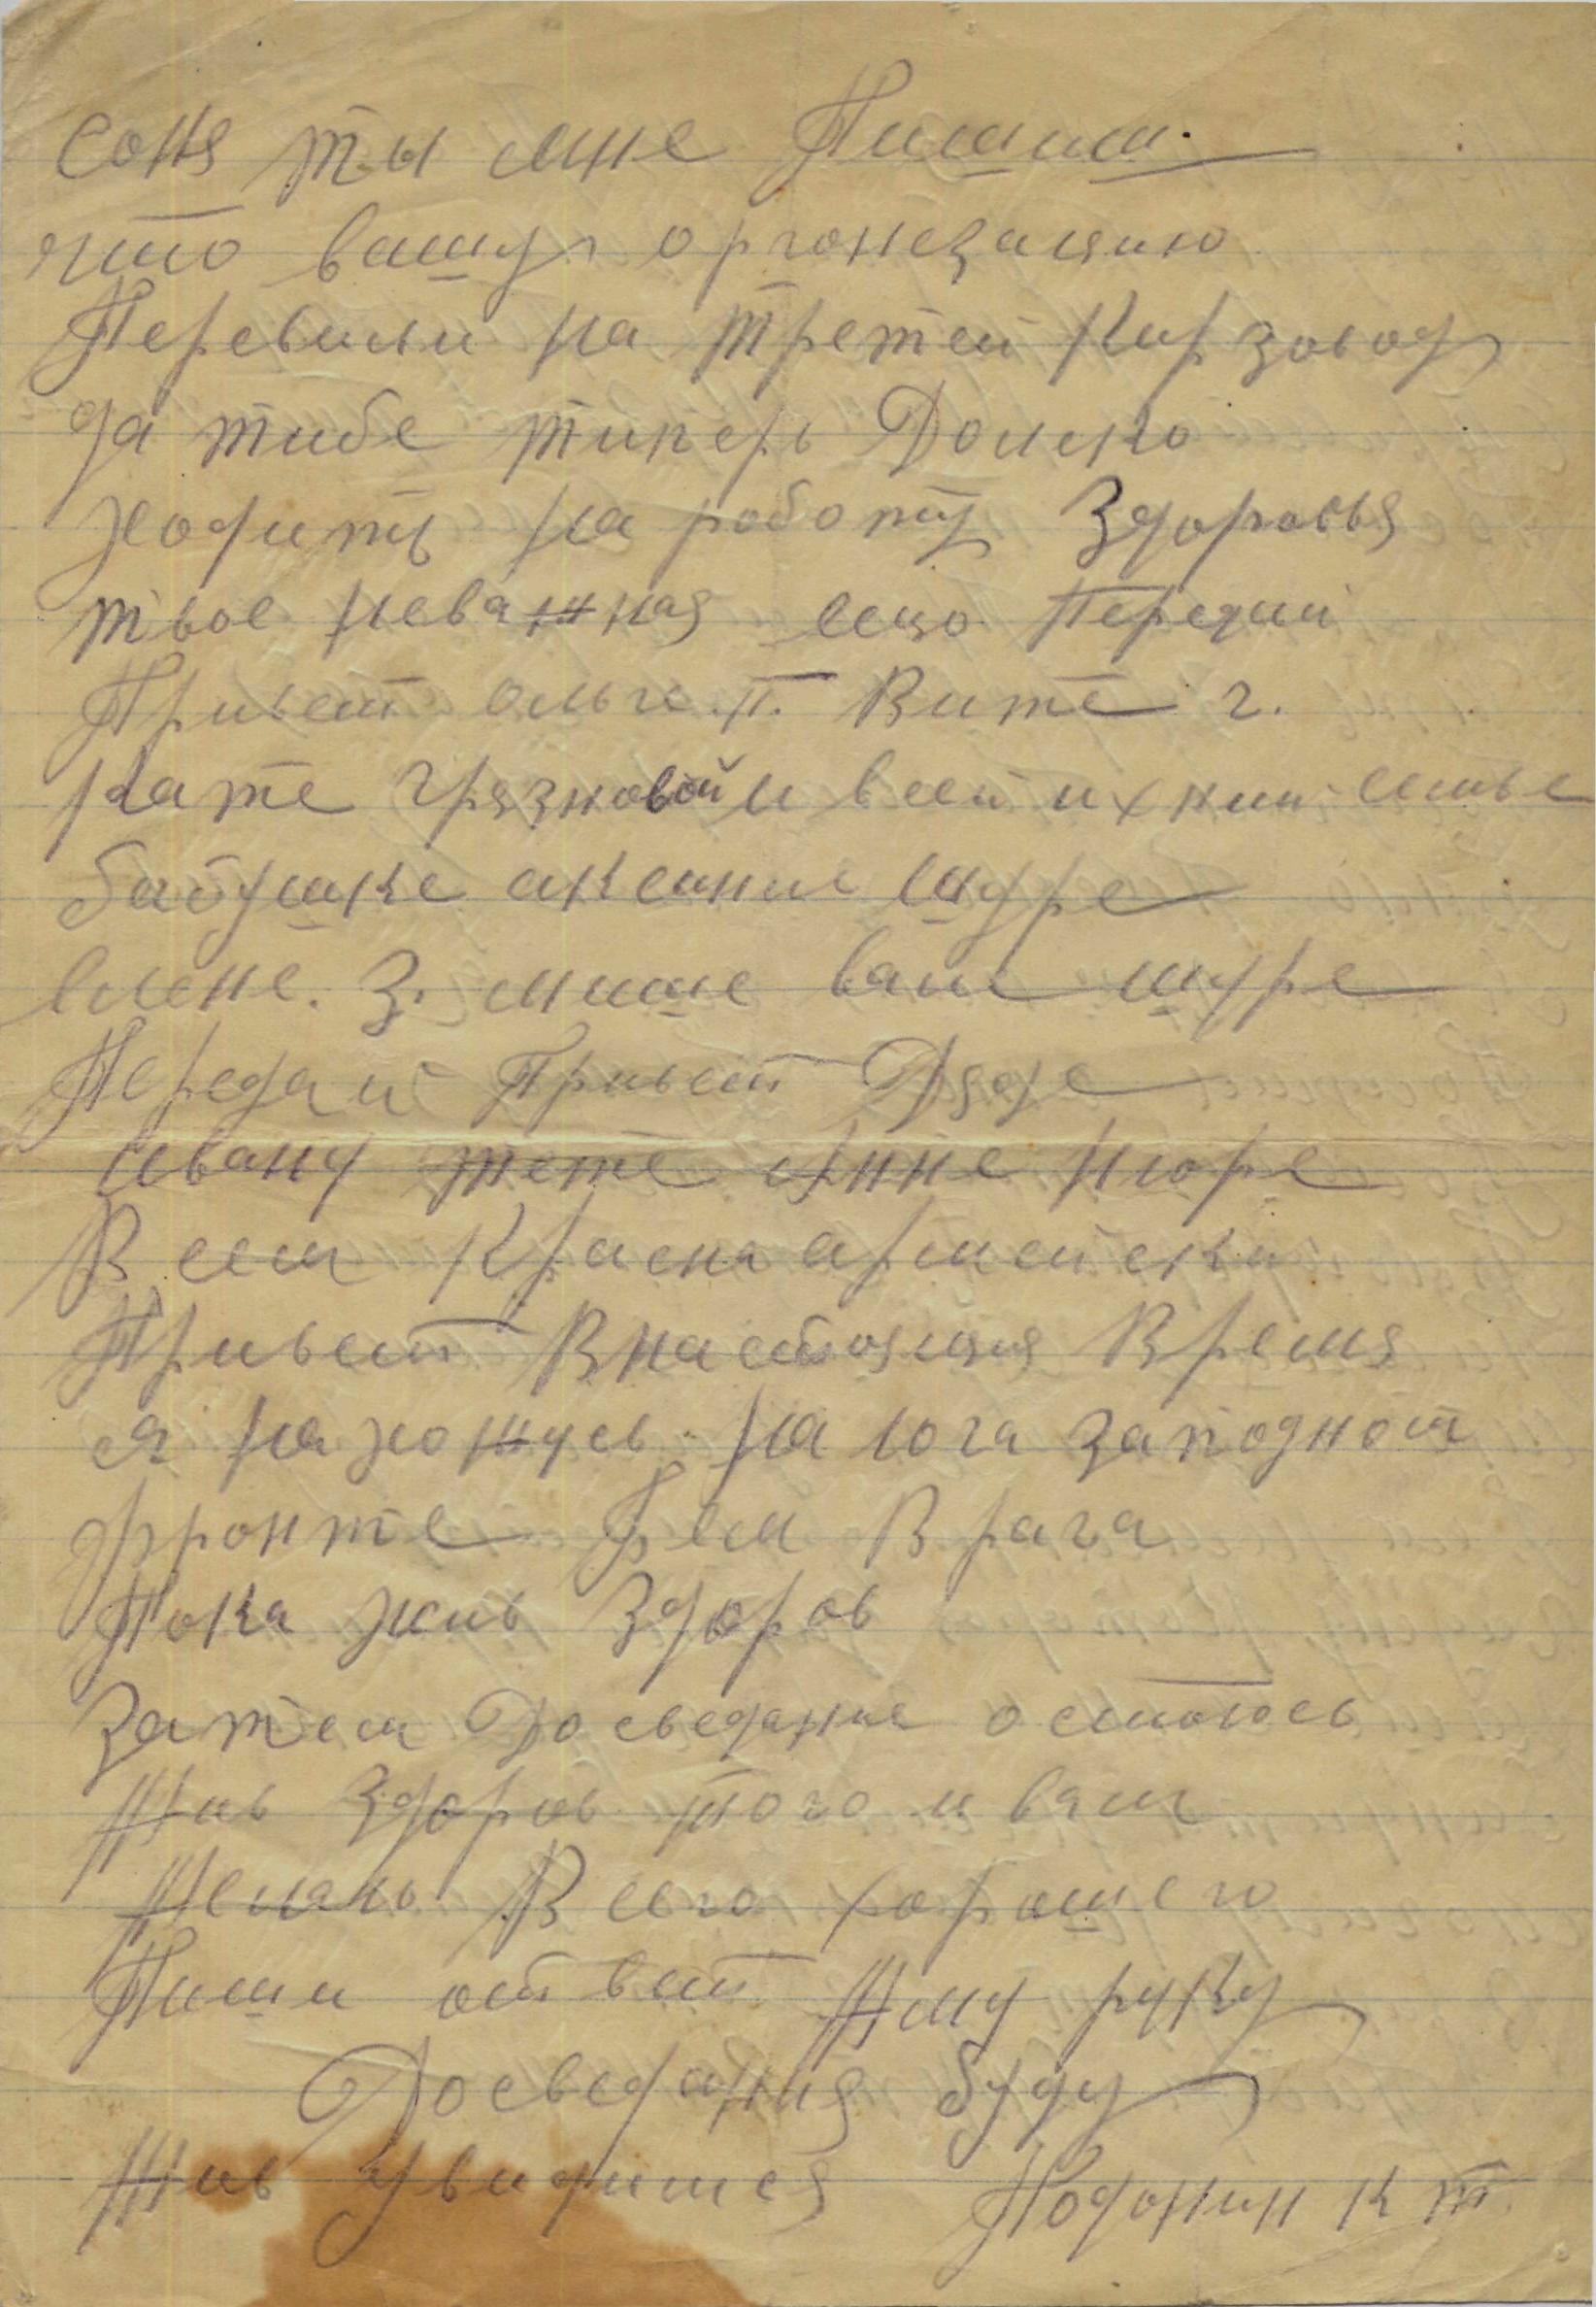 Соня ты мне Пишиш.
что вашу оргонезацию
Перевили на третей Кирзовод
да тибе типерь Долеко
ходить на роботу Здоровья
твое неважная есчо Передай
Привет ольге.п. Вите г.
Кате Грязновой и всей ихний семье
бабушке аксиние шуре
елене. З. мише ваше шуре
Передай Привет Дяде
ивану тете Анне Нюре
Всем Краснаармейски
Привет Внастоящия Время
я нахожусь на юга заподном
фронте Бем Врага
Пока жив Здоров
Затем Досведание остаюсь
Жив Здоров того и вам
Желаю Всего хорошего
Пиши ответ Жму руку
Досведания буду
Жив увидимся Подонин К т.